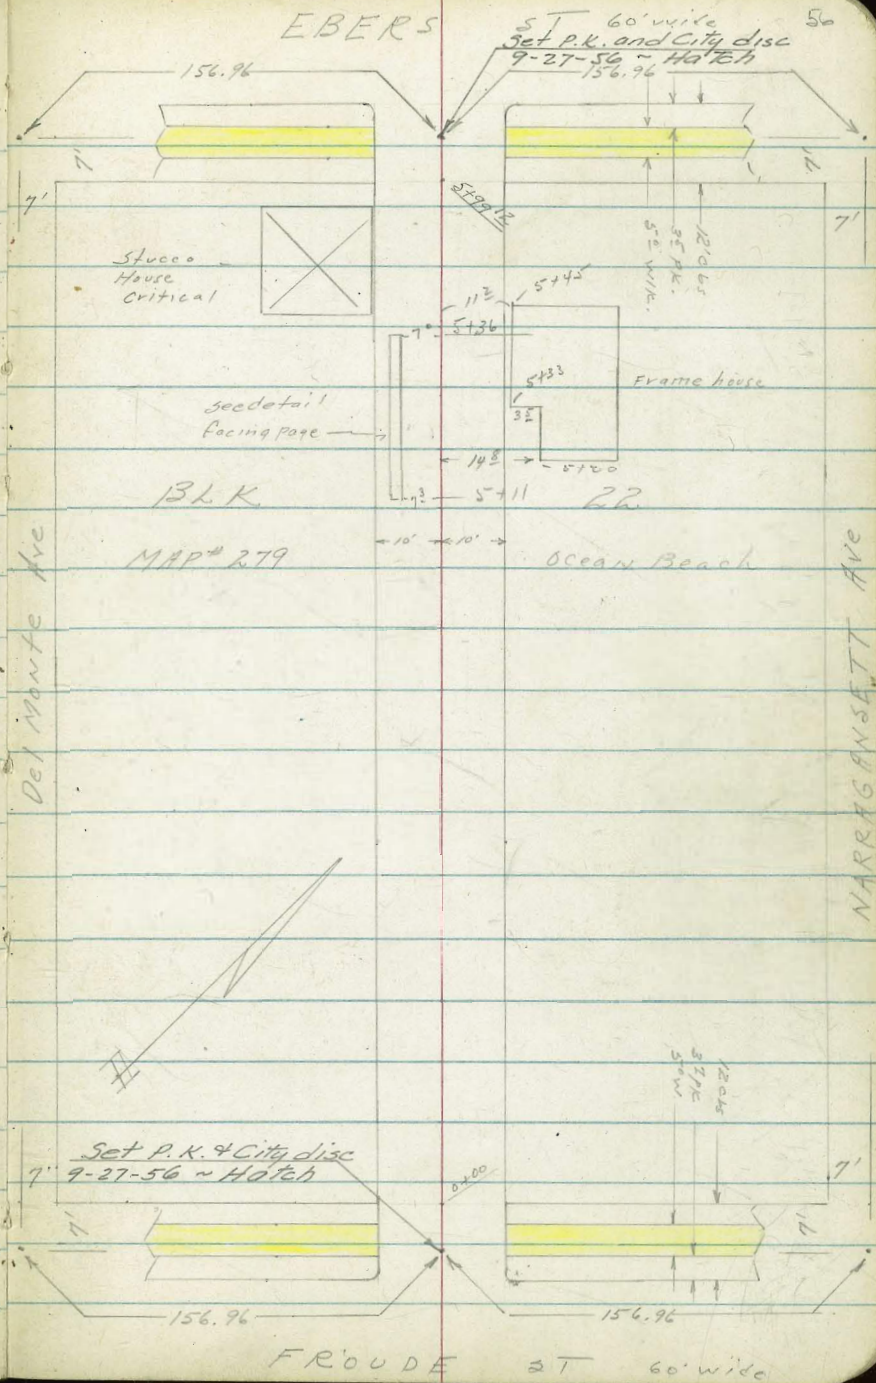 EBERS ST 60' wide
56
Set P.K. and City disc
9-27-56 ~ Hatch
156.96
156.96
7'
7'
7'
7'
5+99
12' cbs
35 PK.
5º WIK.
Stucco
House
Critical
11
5+45
7º
5+36
5+33
35
Frame house
see detail
facing page
14
5+20
BLK
5+11
22
10'
10'
MAP# 279
Ocean Beach
Del Monte Ave
NARRAGANSETT Ave
12 cbs
5º W
Set P.K. & City disc
9-27-56 ~ Hatch
0+00
7'
7'
7'
7'
156.96
156.96
FROUDE ST 60' wide